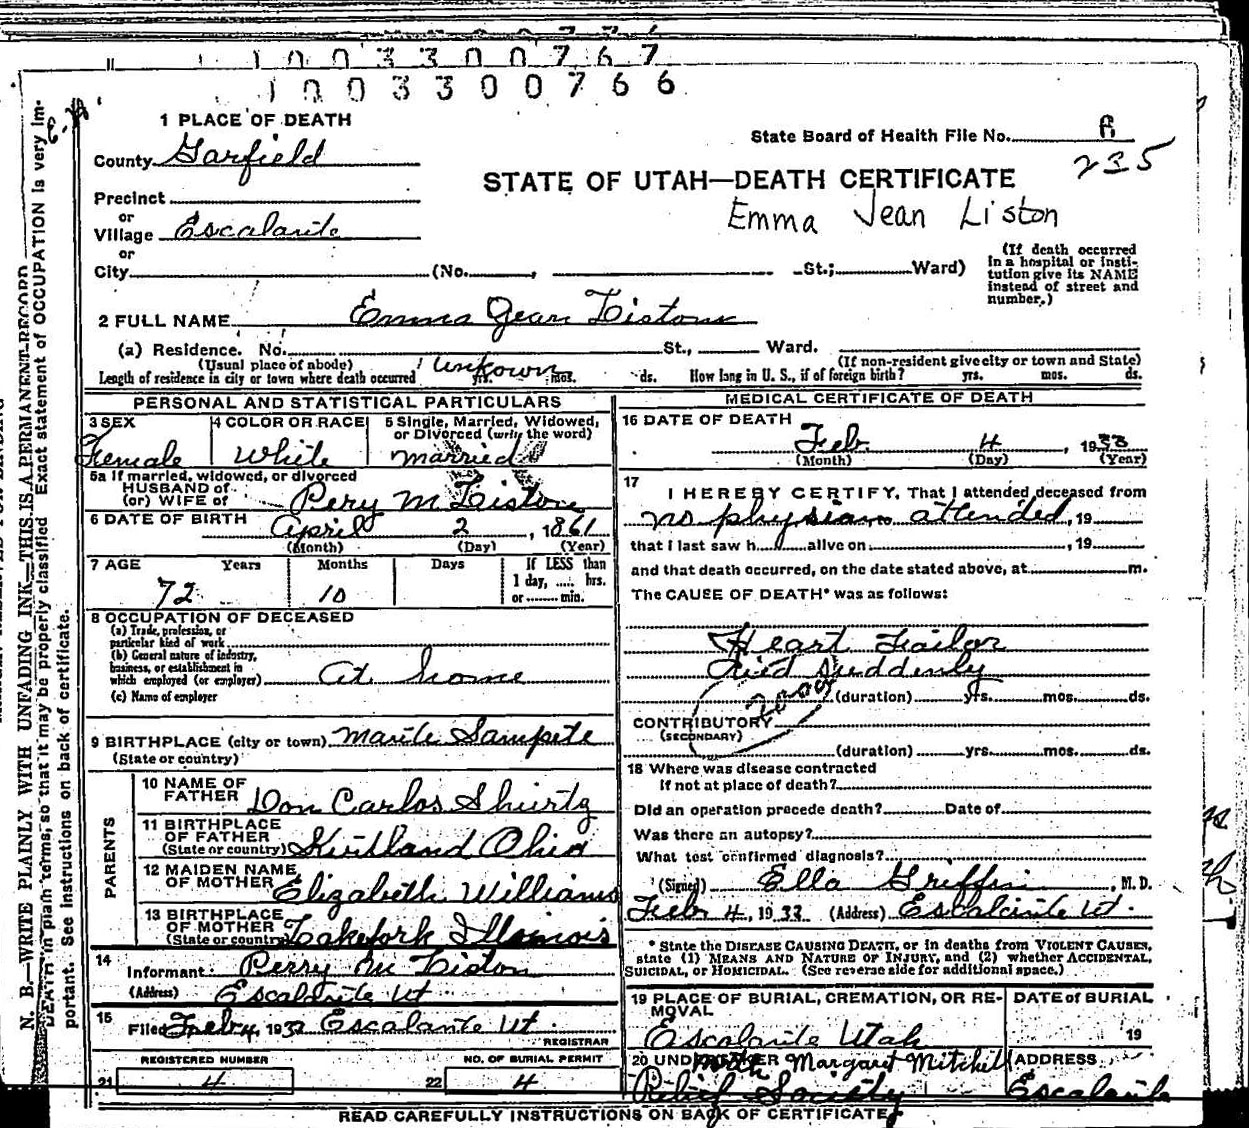 1 0 0 3 3 0 0 7 6 7
1 0 0 3 3 0 0 7 6 6
1 PLACE OF DEATH
State Board of Health File No.
235
County Garfield
STATE OF UTAH—DEATH CERTIFICATE
Emma Jean Liston
Precinct
or
Village Escalante
or
City (No. , St.; Ward)
(If death occurred
in a hospital or insti-
tution give its NAME
instead of street and
number.)
2 FULL NAME Emma Jean Liston
(a) Residence. No. St., Ward.
(Usual place of abode) (If non-resident give city or town and State)
Length of residence in city or town where death occurred Unkown yrs. mos. ds. How long in U. S., if of foreign birth? yrs. mos. ds.
PERSONAL AND STATISTICAL PARTICULARS
3 SEX
Female
4 COLOR OR RACE
White
5 Single, Married, Widowed,
or Divorced (write the word)
Married
5a If married, widowed, or divorced
HUSBAND of
(or) WIFE of Pery M Liston
6 DATE OF BIRTH April 2, 1861
(Month) (Day) (Year)
7 AGE Years Months Days If LESS than
1 day, ..... hrs.
or ........ min.
72 10
8 OCCUPATION OF DECEASED
(a) Trade, profession, or
particular kind of work
(b) General nature of industry,
business, or establishment in
which employed (or employer) At home
(c) Name of employer
9 BIRTHPLACE (city or town) Mantle Sampete
(State or country)
PARENTS
10 NAME OF
FATHER Don Carlos Shurtz
11 BIRTHPLACE
OF FATHER
(State or country) Kirtland Ohio
12 MAIDEN NAME
OF MOTHER Elizabeth Williams
13 BIRTHPLACE
OF MOTHER
(State or country) Lakefork Illinois
14
Informant Perry M Liston
(Address) Escalante Ut
15
Filed Feb 4, 1933 Escalante Ut.
REGISTRAR
REGISTERED NUMBER
21 4
NO. OF BURIAL PERMIT
22 4
MEDICAL CERTIFICATE OF DEATH
16 DATE OF DEATH
Feb. 4, 1933
(Month) (Day) (Year)
17
I HEREBY CERTIFY, That I attended deceased from
no physian attended, 19
that I last saw h alive on , 19
and that death occurred, on the date stated above, at m.
The CAUSE OF DEATH* was as follows:
Heart Failor
Died suddenly
(duration) yrs. mos. ds.
CONTRIBUTORY
(SECONDARY)
(duration) yrs. mos. ds.
18 Where was disease contracted
if not at place of death?
Did an operation precede death? Date of
Was there an autopsy?
What test confirmed diagnosis?
(Signed) Ella Griffin, M. D.
Feb 4, 1933 (Address) Escalante Ut.
* State the DISEASE CAUSING DEATH, or in deaths from VIOLENT CAUSES,
state (1) MEANS AND NATURE OF INJURY, and (2) whether ACCIDENTAL,
SUICIDAL, or HOMICIDAL. (See reverse side for additional space.)
19 PLACE OF BURIAL, CREMATION, OR RE-
MOVAL
Escalante Utah
DATE of BURIAL
19
20 UNDERTAKER Margaret Mitchell
Relief Society
ADDRESS
Escalante
READ CAREFULLY INSTRUCTIONS ON BACK OF CERTIFICATE
N. B.—WRITE PLAINLY WITH UNFADING INK—THIS IS A PERMANENT RECORD
DEATH in plain terms, so that it may be properly classified. Exact statement of OCCUPATION is very im-
portant. See instructions on back of certificate.